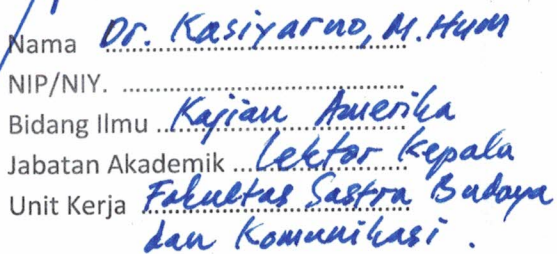 Nama Dr. Kasiyarno, M.Hum
NIP/NIY. ..........................................
Bidang Ilmu Kajian Amerika
Jabatan Akademik Lektor Kepala
Unit Kerja Fakultas Sastra Budaya
dan Komunikasi.